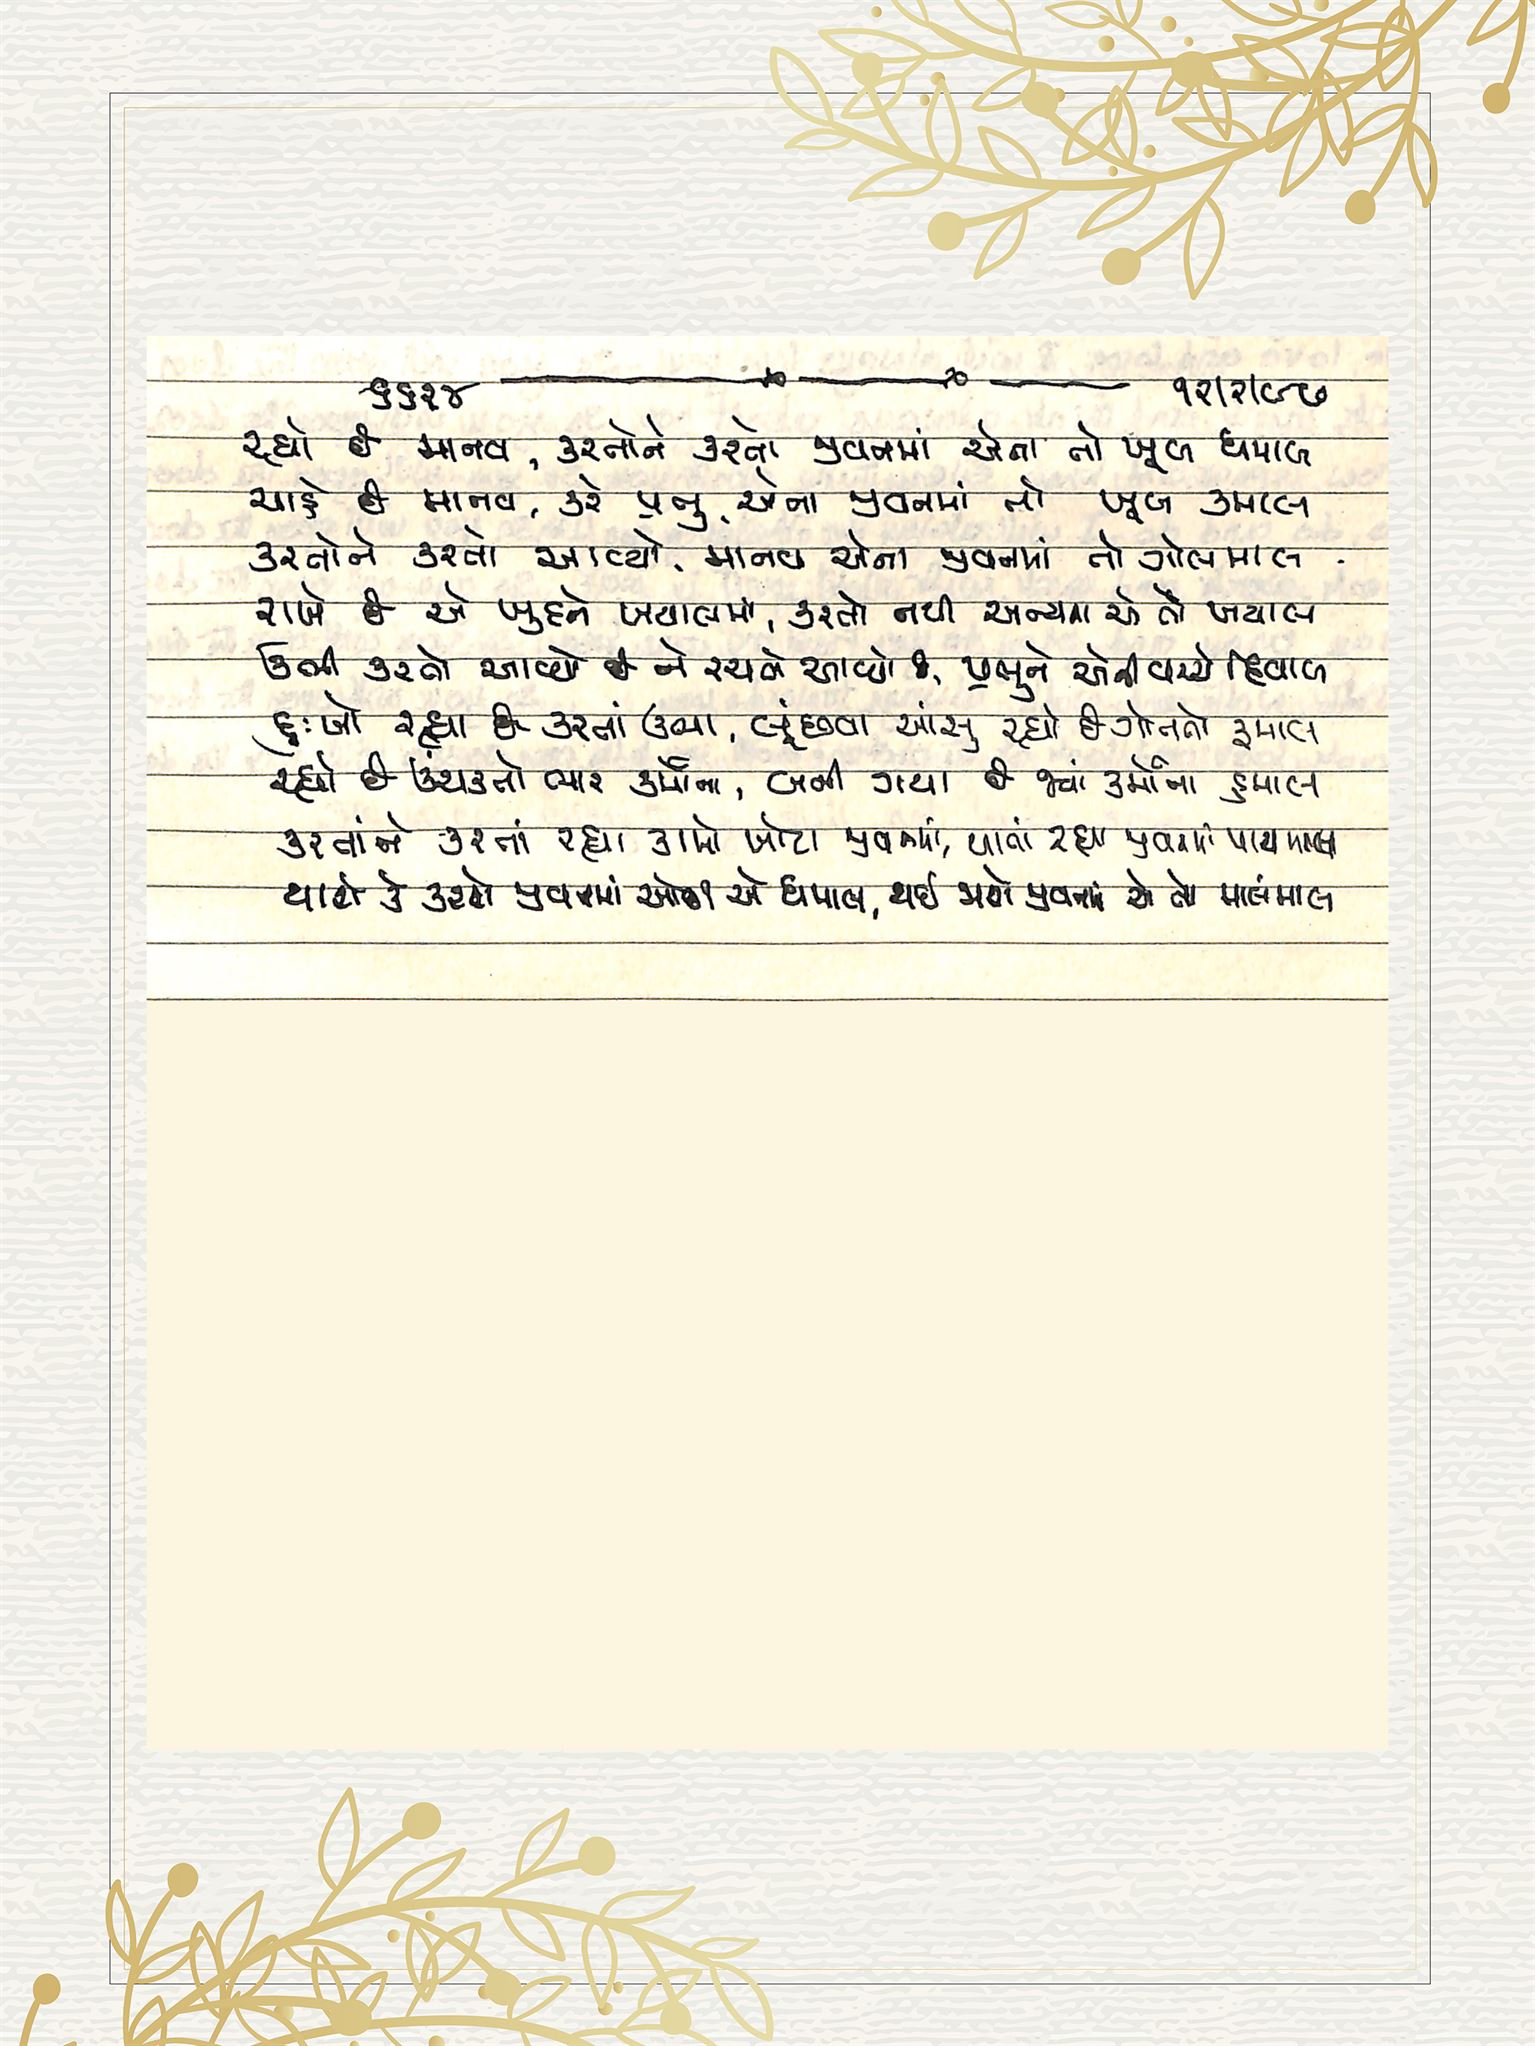 ૬૬૨૪ ૧૨/૨/૯૭
રહ્યો છે માનવ, કરતોને કરતો જીવનમાં એના તો ખૂબ ધમાલ
ચાહે છે માનવ, કરે પ્રભુ, એના જીવનમાં તો ખૂબ કમાલ
કરતોને કરતો આવ્યો, માનવ એના જીવનમાં તો ગોલમાલ
રાખે છે એ ખુદને ખયાલમાં, કરતો નથી અન્યના એ તો ખયાલ
ઊભી કરતો આવ્યો છે ને રચતો આવ્યો છે, પ્રભુને એની વચ્ચે દિવાલ
દુઃખો રહ્યા છે કરતાં ઊભા, લૂંછવા આંસુ રહ્યો છે ગોતતો રૂમાલ
રહ્યો છે ઊંચકતો ભાર કર્મોના, બની ગયા છે જ્યાં કર્મોના હમાલ
કરતાંને કરતાં રહ્યા કામો ખોટા જીવનમાં, થાતાં રહ્યા જીવનમાં પાયમાલ
થાશે કે કરશે જીવનમાં ઓછી એ ધમાલ, થઈ જાશે જીવનમાં એ તો માલંમાલ